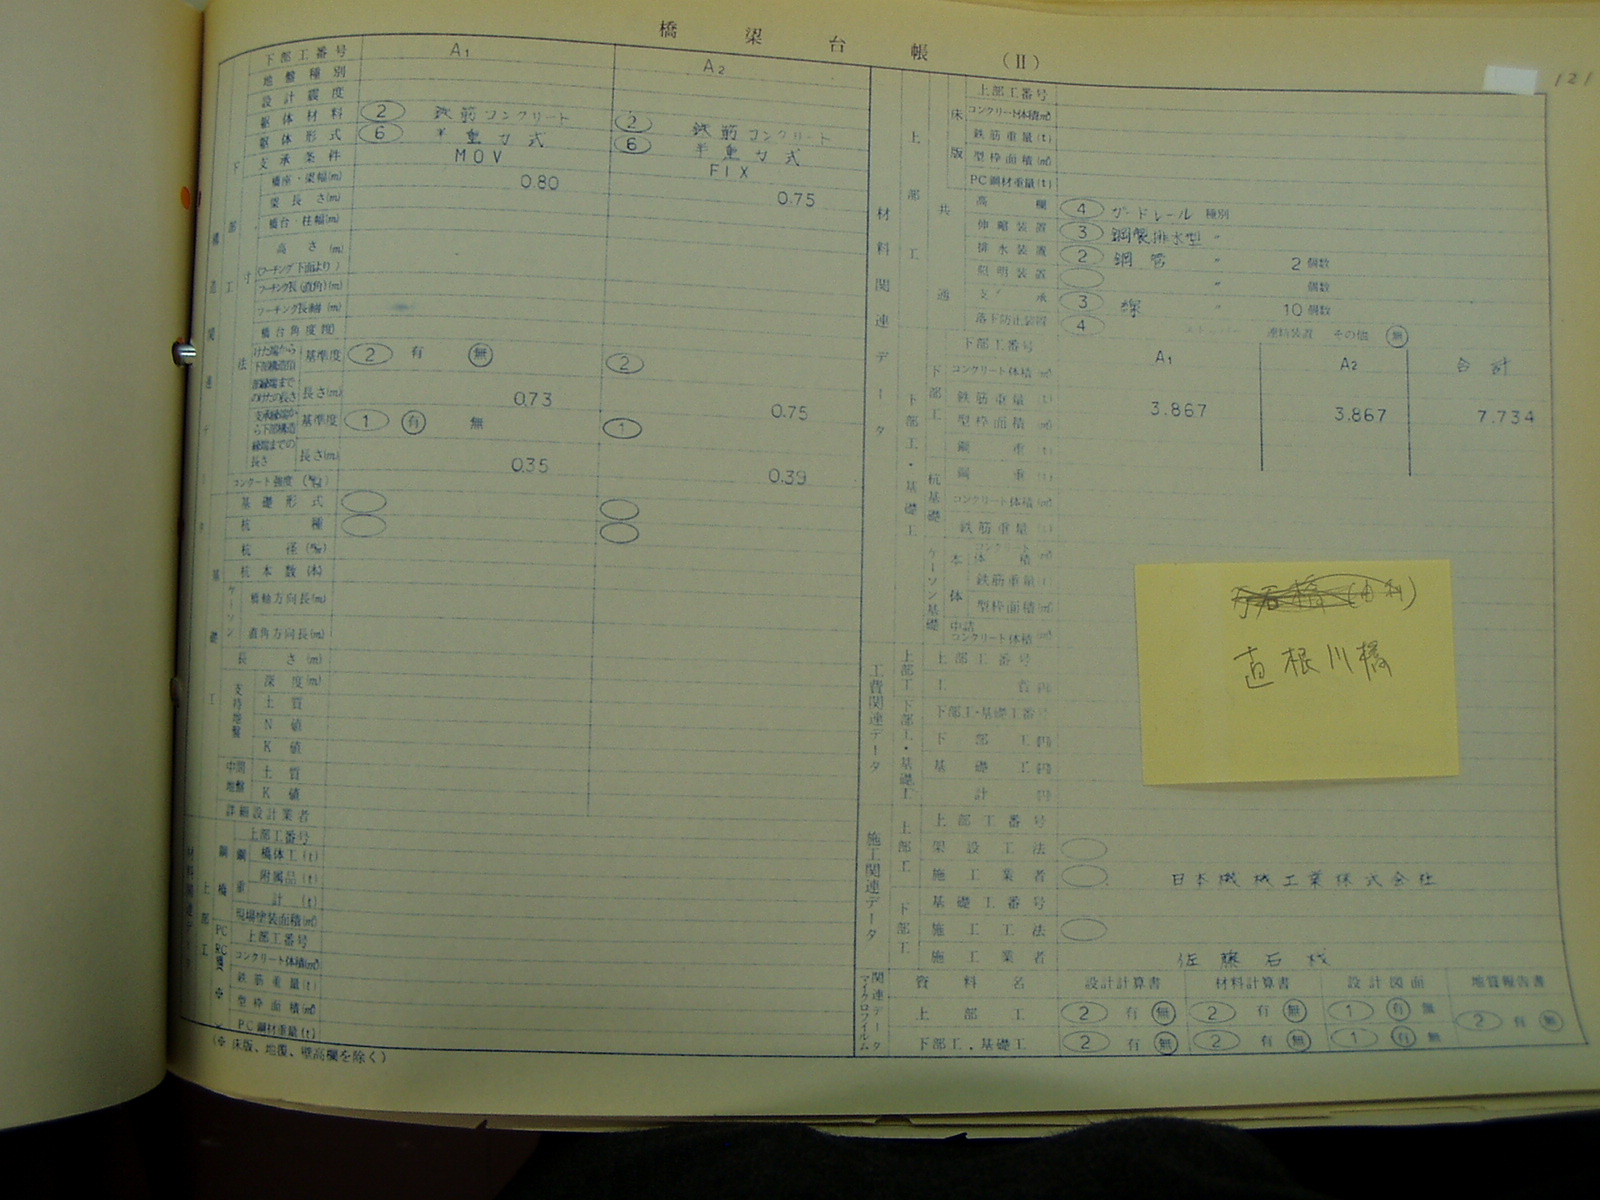 橋梁台帳 (II)
121
下部工番号 A1 A2
地盤種別
設計震度
躯体材料 2 鉄筋コンクリート 2 鉄筋コンクリート
躯体形式 6 半重力式 6 半重力式
支承条件 MOV FIX
橋座・梁幅(m) 0.80 0.75
梁長さ(m)
橋台・柱幅(m)
高さ(m)
(フーチング下面より)
フーチング長(直角)(m)
橋台角度(度)
けた端から下部構造頂部縁端までのけたの長さ 基準度 2 有 無 2
長さ(m) 0.73 0.75
支承縁端から下部構造縁端までの長さ 基準度 1 有 無 1
長さ(m) 0.35 0.39
基礎形式
杭種
杭径
杭本数(本)
ケーソン 橋軸方向長(m)
直角方向長(m)
長さ(m)
支持地盤 深度(m)
土質
N値
K値
中間地盤 土質
K値
詳細設計業者
上部工番号
鋼橋 鋼重 橋体工(t)
附属品(t)
計(t)
現場塗装面積(㎡)
PC RC橋 上部工番号
コンクリート体積(㎥)
鉄筋重量(t)
型枠面積(㎡)
PC鋼材重量(t)
(※床版、地覆、壁高欄を除く)
構造関連データ
下部工
寸法
基礎工
材料関連データ
上部工
床版 上部工番号
コンクリート体積(㎥)
鉄筋重量(t)
型枠面積(㎡)
PC鋼材重量(t)
共通 高欄 4 ガードレール 種別
伸縮装置 3 鋼製排水型 〃
排水装置 2 鋼管 〃 2個数
照明装置 〃 個数
支承 3 線 〃 10個数
落下防止装置 4 ストッパー 連結装置 その他 無
下部工・基礎工
下部工番号 A1 A2 合計
下部工 コンクリート体積(㎥)
鉄筋重量(t) 3.867 3.867 7.734
型枠面積(㎡)
鋼重(t)
杭基礎 鋼重(t)
コンクリート体積(㎥)
鉄筋重量(t)
ケーソン基礎 本体 コンクリート体積(㎥)
鉄筋重量(t)
型枠面積(㎡)
中詰コンクリート体積(㎥)
工費関連データ
上部工 上部工番号
下部工・基礎工 下部工・基礎工番号
下部工
基礎工
計
施工関連データ
上部工 上部工番号
架設工法
施工業者 日本機械工業株式会社
下部工 基礎工番号
施工工法
施工業者 佐藤石材
マイクロフイルム関連データ
資料名 設計計算書 材料計算書 設計図面 地質報告書
上部工 2 有 無 2 有 無 1 有 無 2 有 無
下部工.基礎工 2 有 無 2 有 無 1 有 無
(由利)
直根川橋